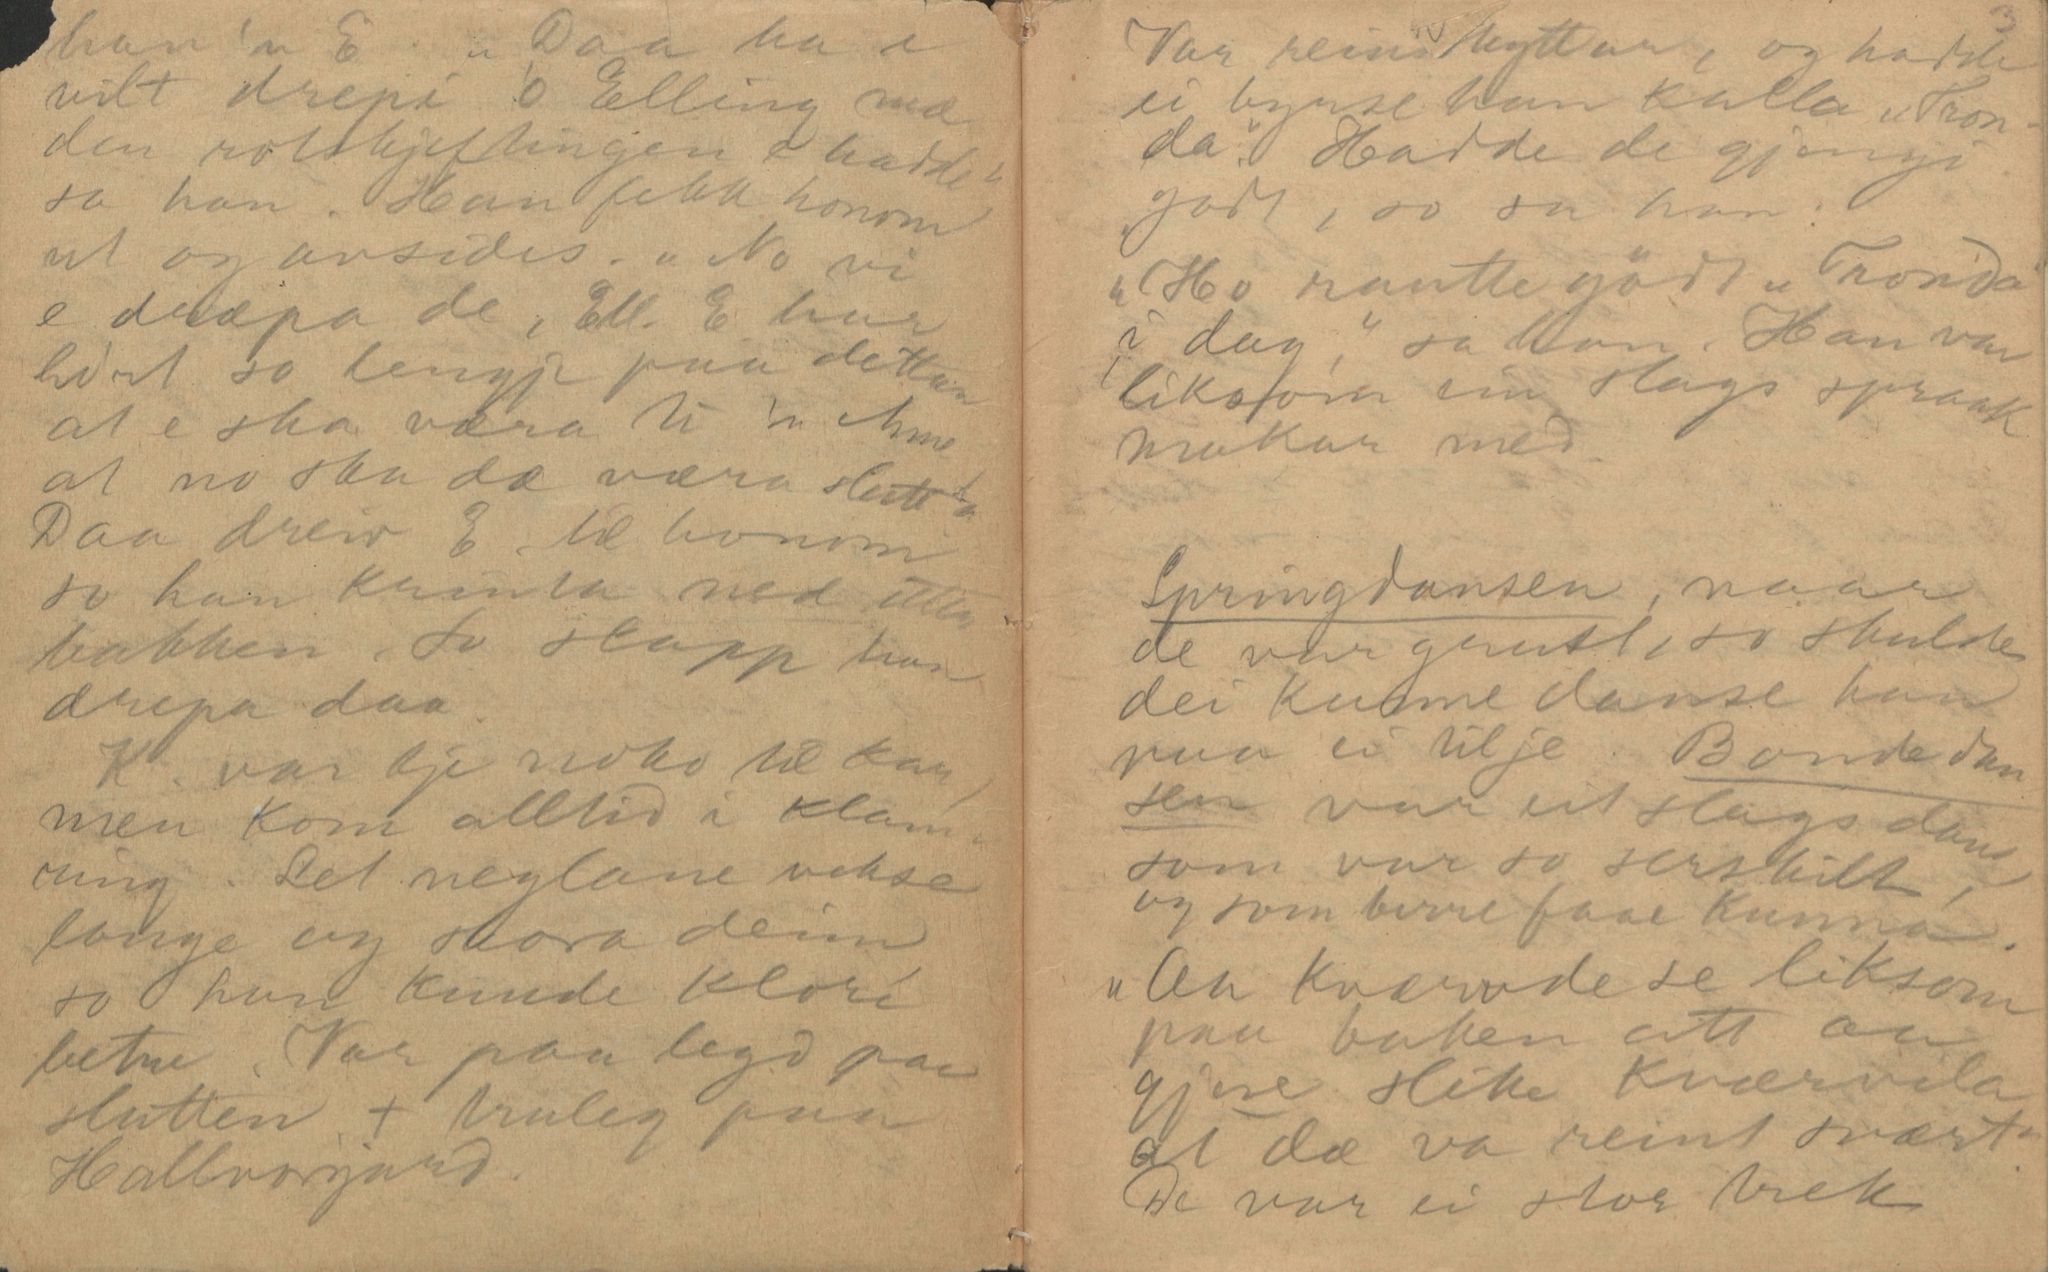 han 'n E. „Daa ha e
vilt drepi 'o Elling mæ
den rotskjeftingen e hadde"
sa han. Han fekk honom
ut og avsides. „No vi
e dræpa de, Ell. E har
hørt so lengje paa dettan
at e ska væra ti 'n
at no ska dæ væra slutt"
Daa dreiv E. til honom
so han ned
bakken. So slapp han
drepa daa.
K. var kje noko til kar,
men kom alltid i klam-
ring. Let neglane vekse
lange og skora deim
so han kunde klore
betre. Var paa legd paa
slutten. + truleg paa
Hallvorgjard.
3
Var reinskyttar, og hadde
ei byrse han kalla „Tron-
da". Hadde de gjengi
godt, so sa han:
„Ho rautte gødt „Tronda"
i dag," sa han. Han var
liksom ein slags spraak
makar med.
Springdansen, naar
de var grust, so skulde
dei kunne danse han
paa ei tilje. Bondedan
sen var eit slags dans
som var so serskilt,
og som berre faae kunna.
„An kværvde se liksom
paa baken att an
gjore slike kværvila
at dæ va reint svært"
De var ei stor trek